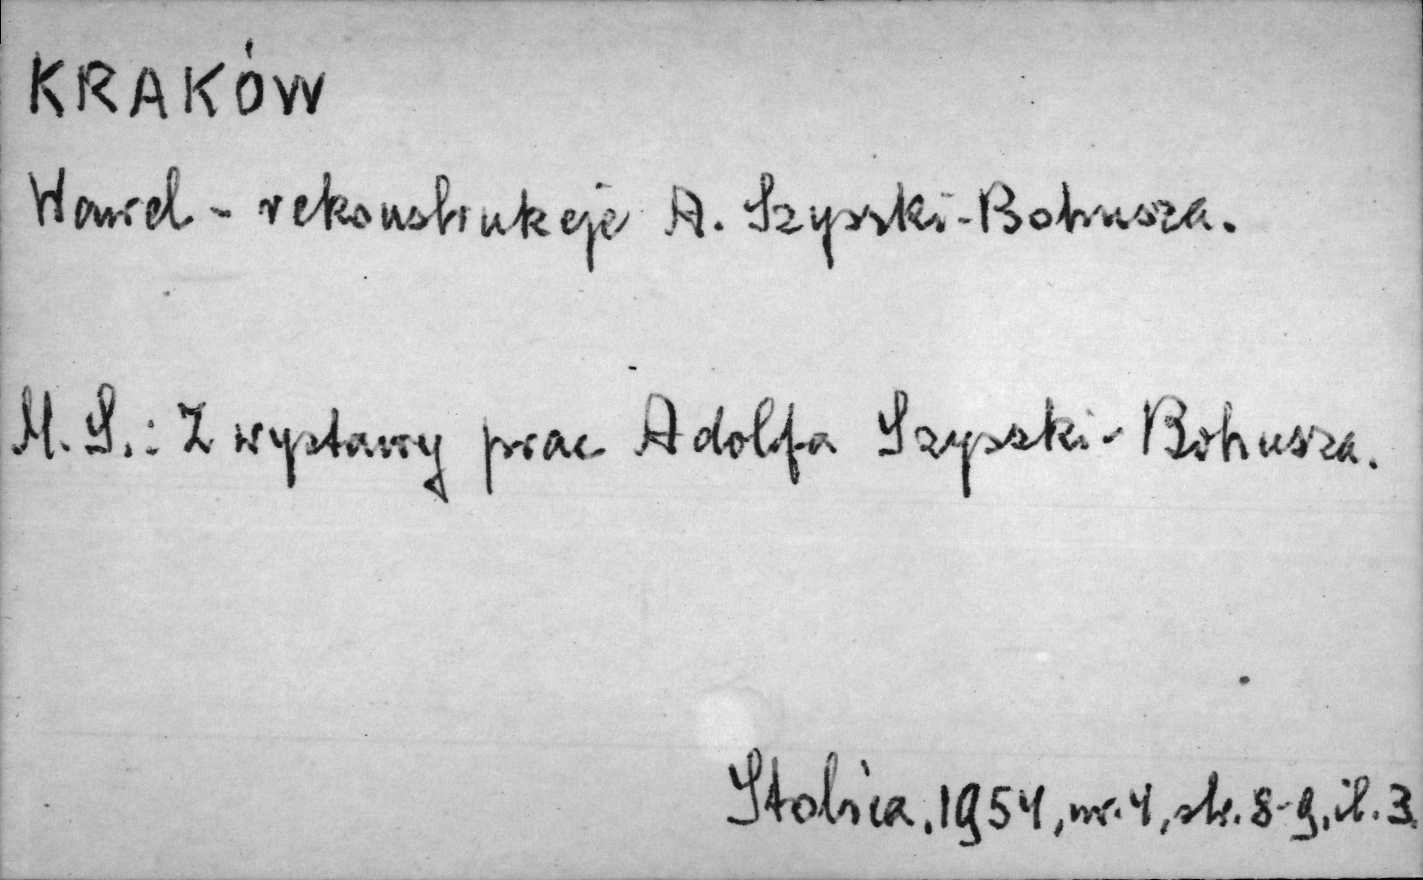 KRAKÓW
Wawel - rekonstrukcje A. Szyszki-Bohusza.
M. S.: Z wystawy prac Adolfa Szyszki-Bohusza.
Stolica, 1954, nr. 4, str. 8-9, il. 3.